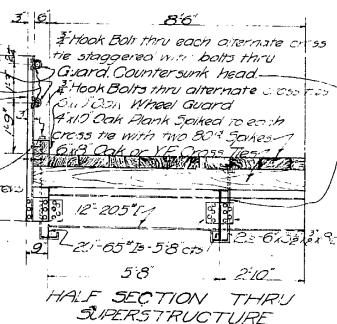 3" 6" 8'6"
3/4" Hook Bolt thru each alternate cross
tie staggered with bolts thru
Guard. Countersunk head.
3/4" Hook Bolts thru alternate cross ties
Oak Wheel Guard
4"x10" Oak Plank Spiked to each
cross tie with two 80d Spikes
6"x8" Oak or Y.F. Cross Ties
1'-9"
12"-20.5"
5'8" cts
9"
5'8" 2'10"
HALF SECTION THRU
SUPERSTRUCTURE